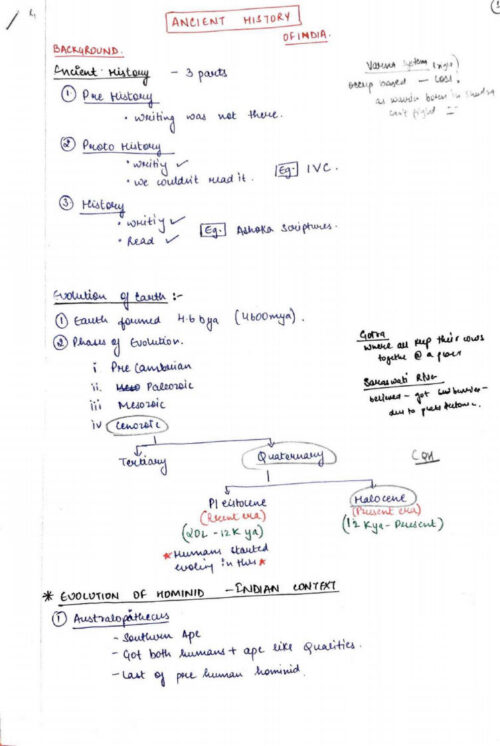 ANCIENT HISTORY
OF INDIA.
BACKGROUND.
Ancient History - 3 parts
① Pre History
• writing was not there.
② Proto History
• writiy ✓
• we couldn't read it. Eg: IVC.
③ History
• writiy ✓
• Read ✓ Eg: Ashoka Scriptures.
Varna System
occup based -
as warrior born in
can't fight
Evolution of Earth :-
① Earth formed 4.6 bya (4600mya).
② Phases of Evolution.
i Pre Cambrian
ii. Paleozoic
iii Mesozoic
iv Cenozoic
Gotra
where all keep their cows
togethe @ a place
Saraswati River
believed - got
due to plate tectonic.
Tertiary Quaternary
Pleistocene Halocene
(Recent era) (Present era)
(20L - 12K ya) (12 Kya - Present)
* Humans started
evoling in this *
* EVOLUTION OF HOMINID - INDIAN CONTEXT
① Australopathecus
- Southern Ape
- Got both humans + ape like Qualities.
- Last of pre human hominid.